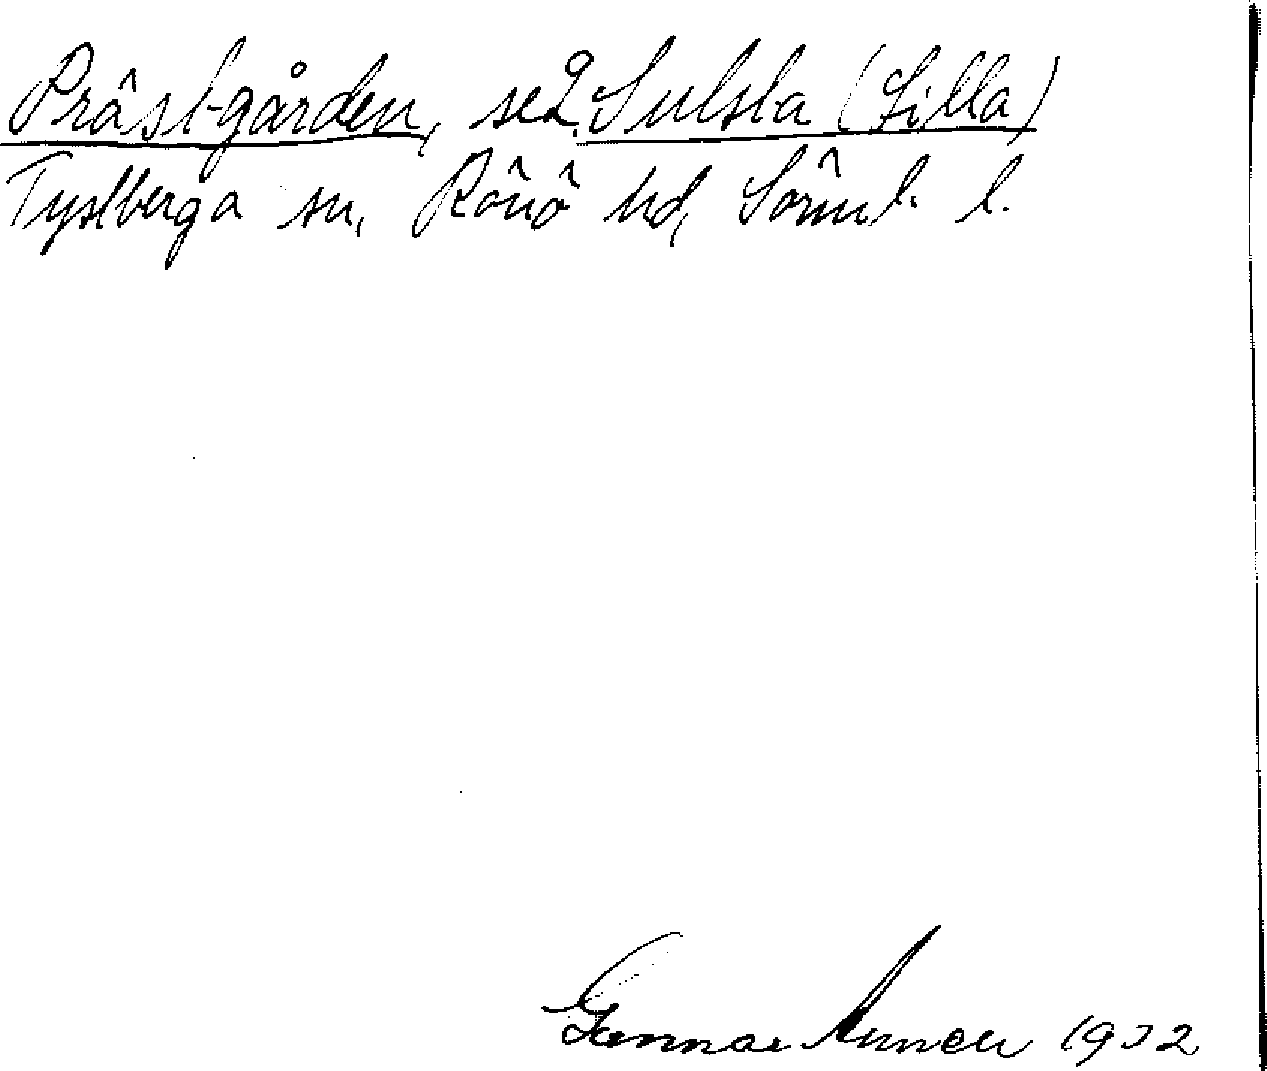 Prästgården, se 2 Sulsta (Lilla)
Tystberga sn, Rönö hd, Sörml. l.
Gunnar 1932